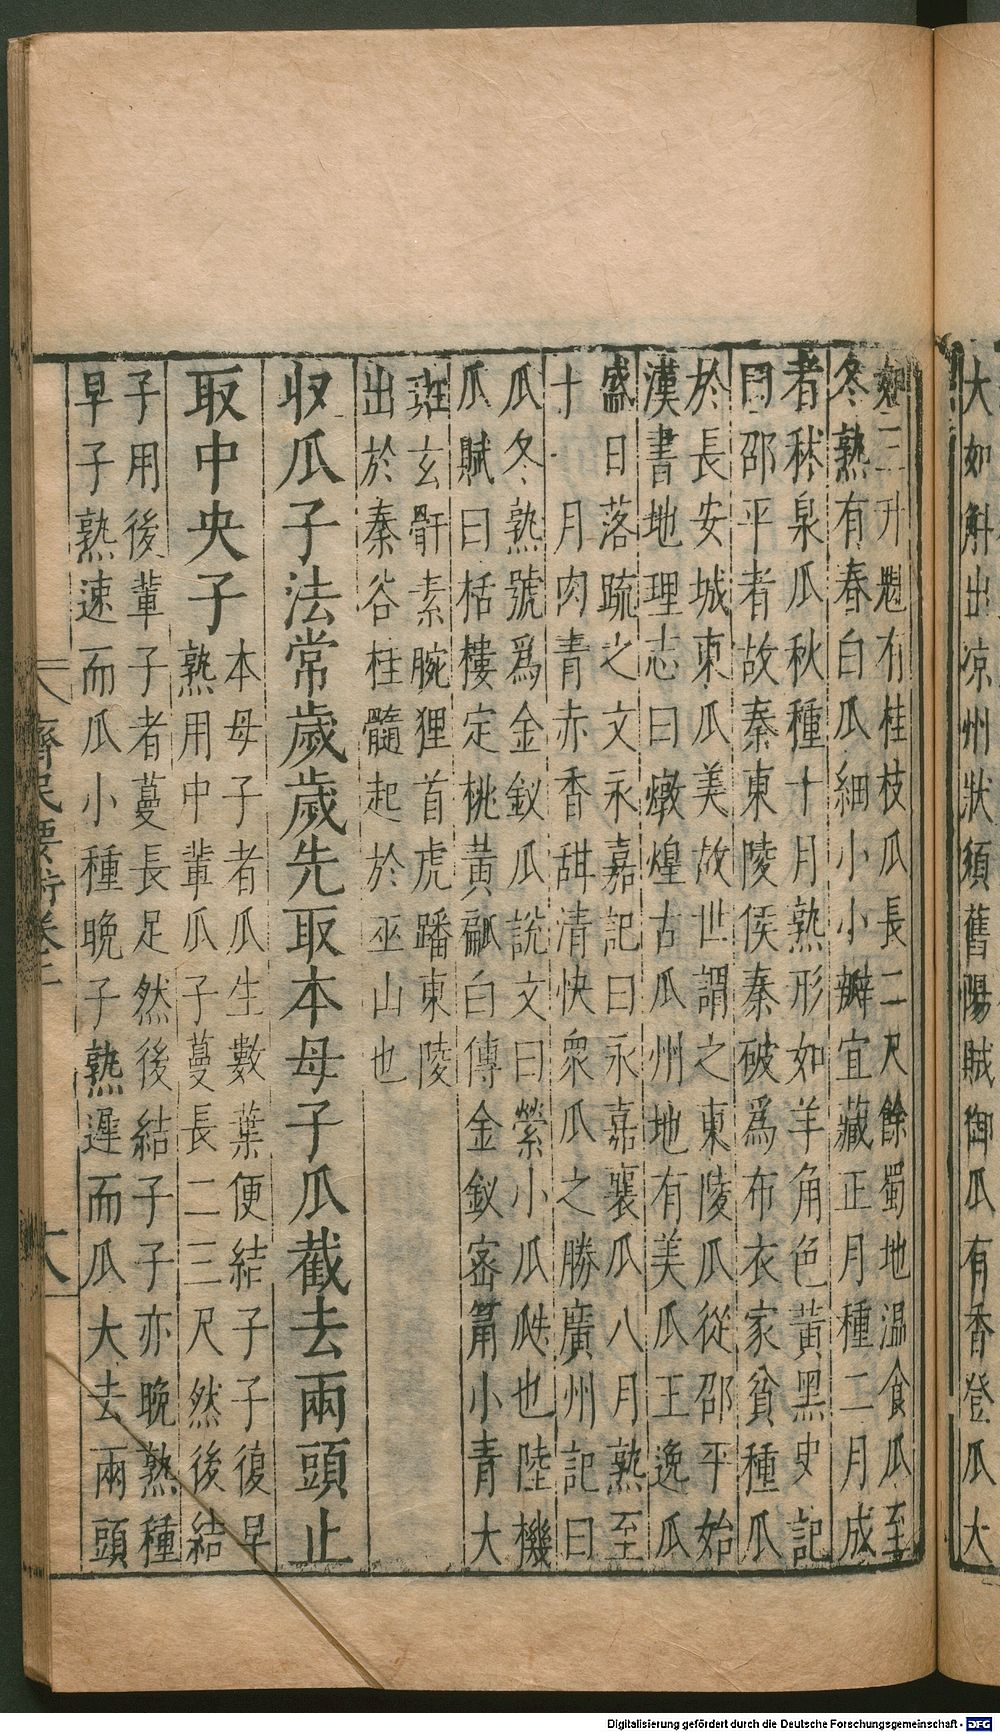 大如斛出凉州狀須舊陽賊御瓜有香登瓜大
如三升魁有桂枝瓜長二尺餘蜀地温食瓜至
冬熟有春白瓜細小小瓣宜藏正月種二月成
者秋泉瓜秋種十月熟形如羊角色黃黑史記
曰邵平者故秦東陵侯秦破爲布衣家貧種瓜
於長安城東瓜美故世謂之東陵瓜從邵平始
漢書地理志曰燉煌古瓜州地有美瓜王逸瓜
盛日落疏之文永嘉記曰永嘉襄瓜八月熟至
十一月肉青赤香甜清快衆瓜之勝廣州記曰
瓜冬熟號爲金釵瓜說文曰䇾小瓜瓞也陸機
瓜賦曰栝樓定桃黃㼐白傳金釵宻筩小青大
班玄骭素腕狸首虎蹯東陵
出於秦谷桂髓起於巫山也
収瓜子法常歲歲先取本母子瓜截去兩頭止
取中央子
本母子者瓜生數葉便結子子復早
熟用中輩瓜子蔓長二三尺然後結
子用後輩子者蔓長足然後結子子亦晚熟種
早子熟速而瓜小種晚子熟遲而瓜大去兩頭
齊民要術卷二
Digitalisierung gefördert durch die Deutsche Forschungsgemeinschaft - DFG